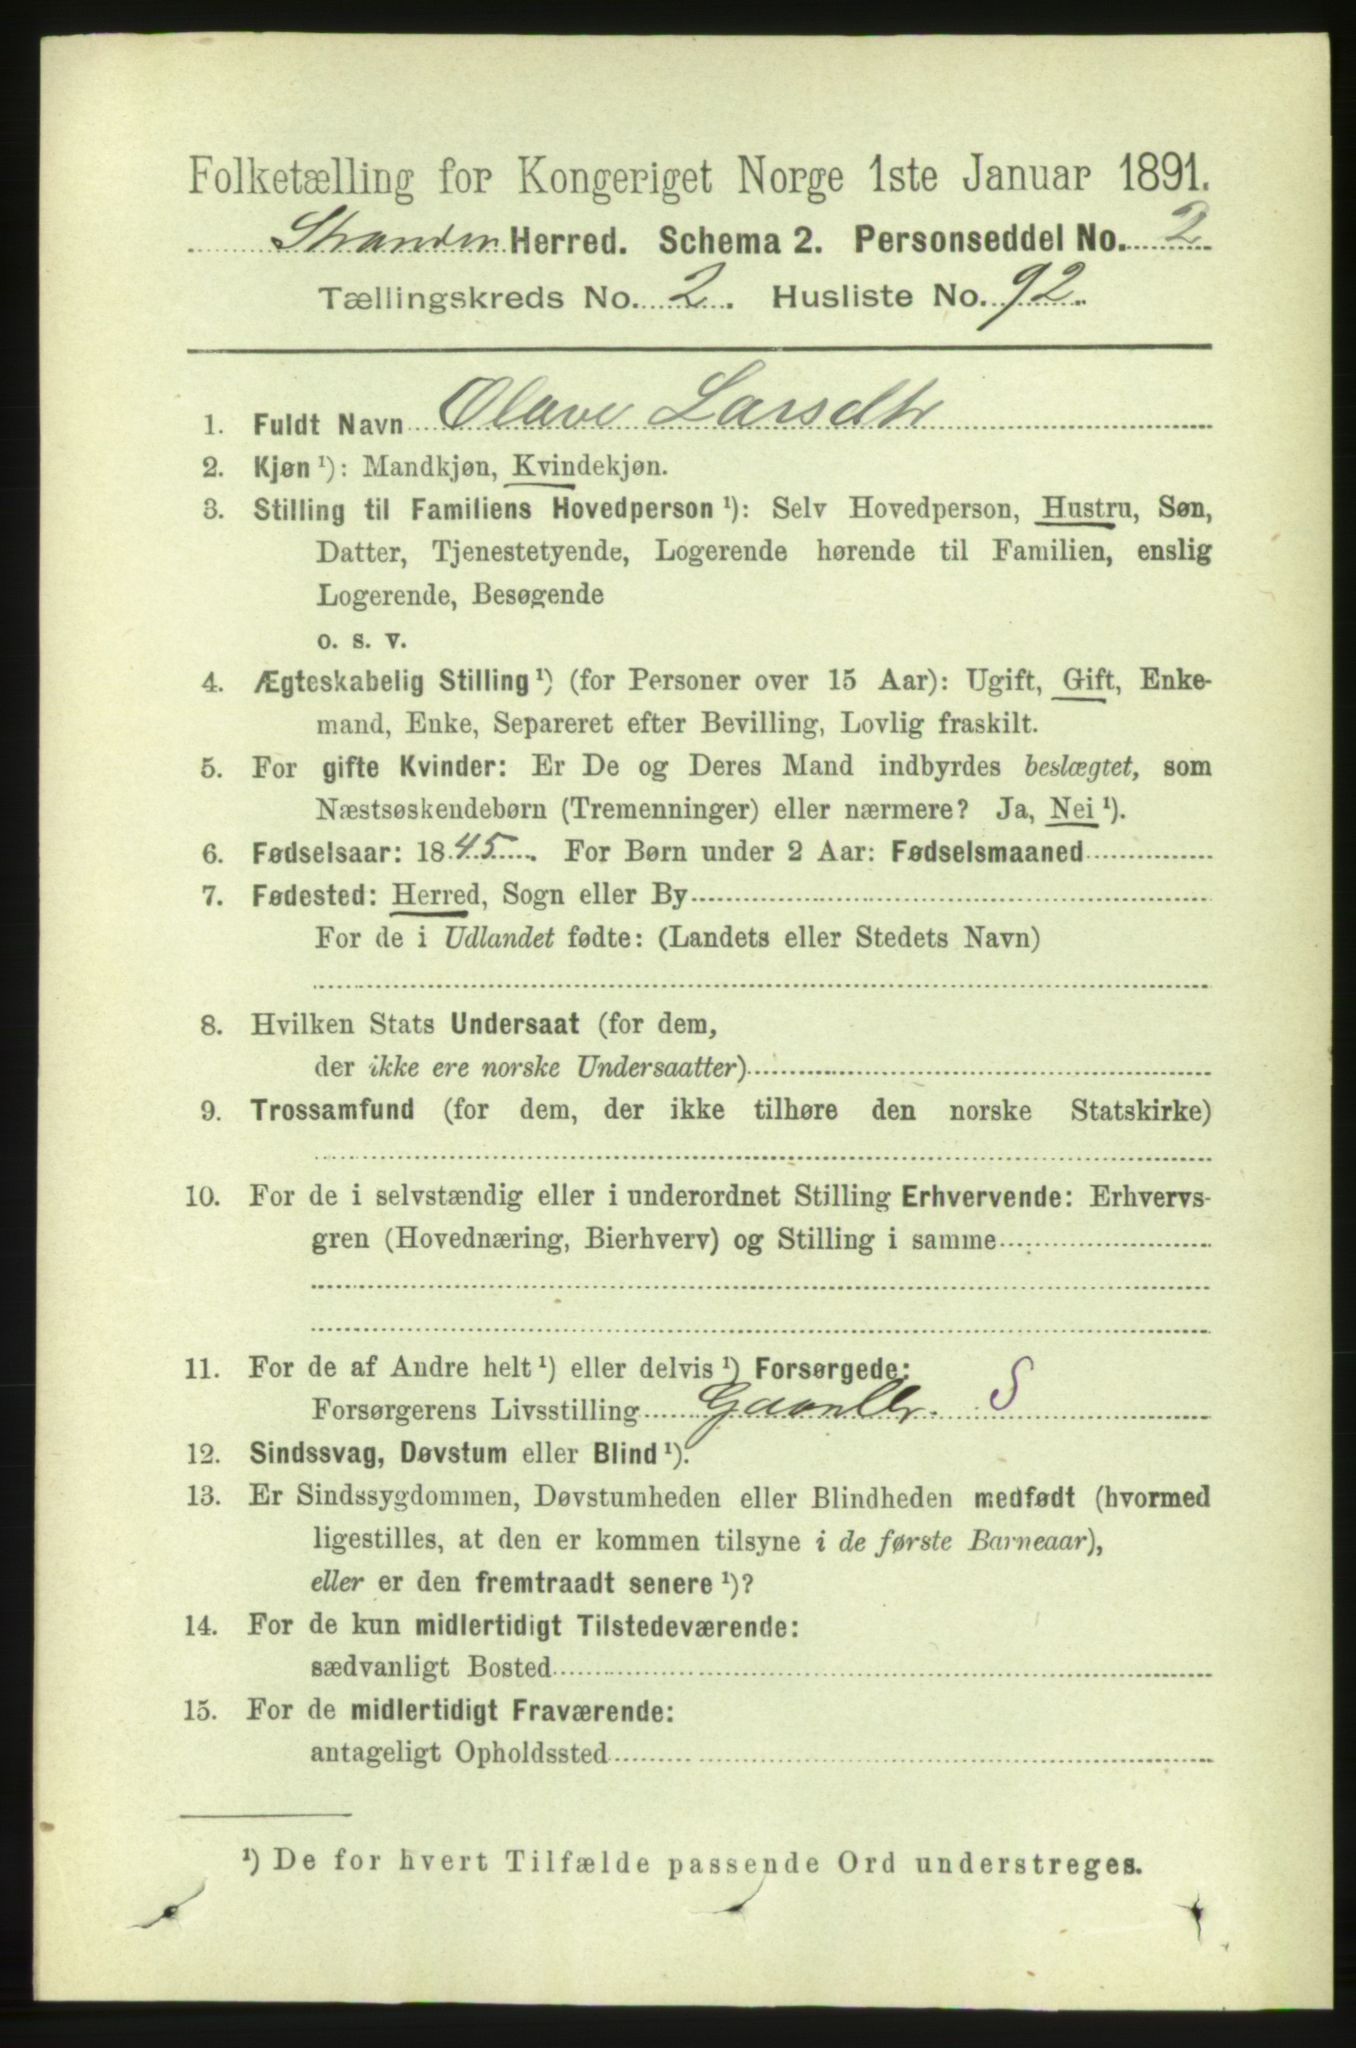 Folketælling for Kongeriget Norge 1ste Januar 1891.
Stranden Herred. Schema 2. Personseddel No. 2
Tællingskreds No. 2. Husliste No. 92.
1. Fuldt Navn Olave Larsdtr
2. Kjøn ¹): Mandkjøn, Kvindekjøn.
3. Stilling til Familiens Hovedperson ¹): Selv Hovedperson, Hustru, Søn,
Datter, Tjenestetyende, Logerende hørende til Familien, enslig
Logerende, Besøgende
o. s. v.
4. Ægteskabelig Stilling ¹) (for Personer over 15 Aar): Ugift, Gift, Enke-
mand, Enke, Separeret efter Bevilling, Lovlig fraskilt.
5. For gifte Kvinder: Er De og Deres Mand indbyrdes beslægtet, som
Næstsøskendebørn (Tremenninger) eller nærmere? Ja, Nei ¹).
6. Fødselsaar: 1845. For Børn under 2 Aar: Fødselsmaaned
7. Fødested: Herred, Sogn eller By
For de i Udlandet fødte: (Landets eller Stedets Navn)
8. Hvilken Stats Undersaat (for dem,
der ikke ere norske Undersaatter)
9. Trossamfund (for dem, der ikke tilhøre den norske Statskirke)
10. For de i selvstændig eller i underordnet Stilling Erhvervende: Erhvervs-
gren (Hovednæring, Bierhverv) og Stilling i samme
11. For de af Andre helt ¹) eller delvis ¹) Forsørgede:
Forsørgerens Livsstilling S
12. Sindssvag, Døvstum eller Blind ¹).
13. Er Sindssygdommen, Døvstumheden eller Blindheden medfødt (hvormed
ligestilles, at den er kommen tilsyne i de første Barneaar),
eller er den fremtraadt senere ¹)?
14. For de kun midlertidigt Tilstedeværende:
sædvanligt Bosted
15. For de midlertidigt Fraværende:
antageligt Opholdssted
¹) De for hvert Tilfælde passende Ord understreges.